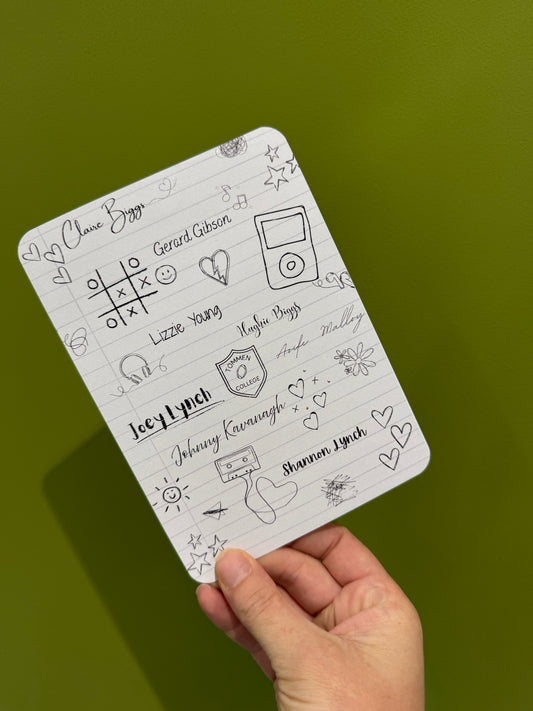 Claire Biggs
Gerard Gibson
Lizzie Young
Hughie Biggs
Aoife Malloy
TOMMEN
COLLEGE
Joey Lynch
Johnny Kavanagh
Shannon Lynch